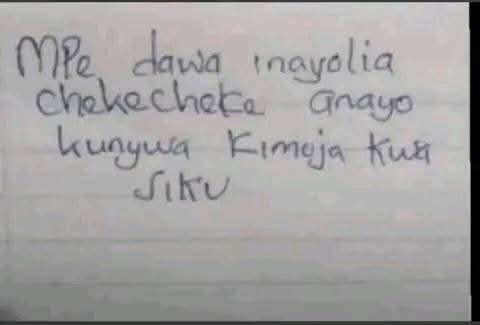 MPe dawa inayolia
chekecheke anayo
kunywa Kimoja Kwa
siku